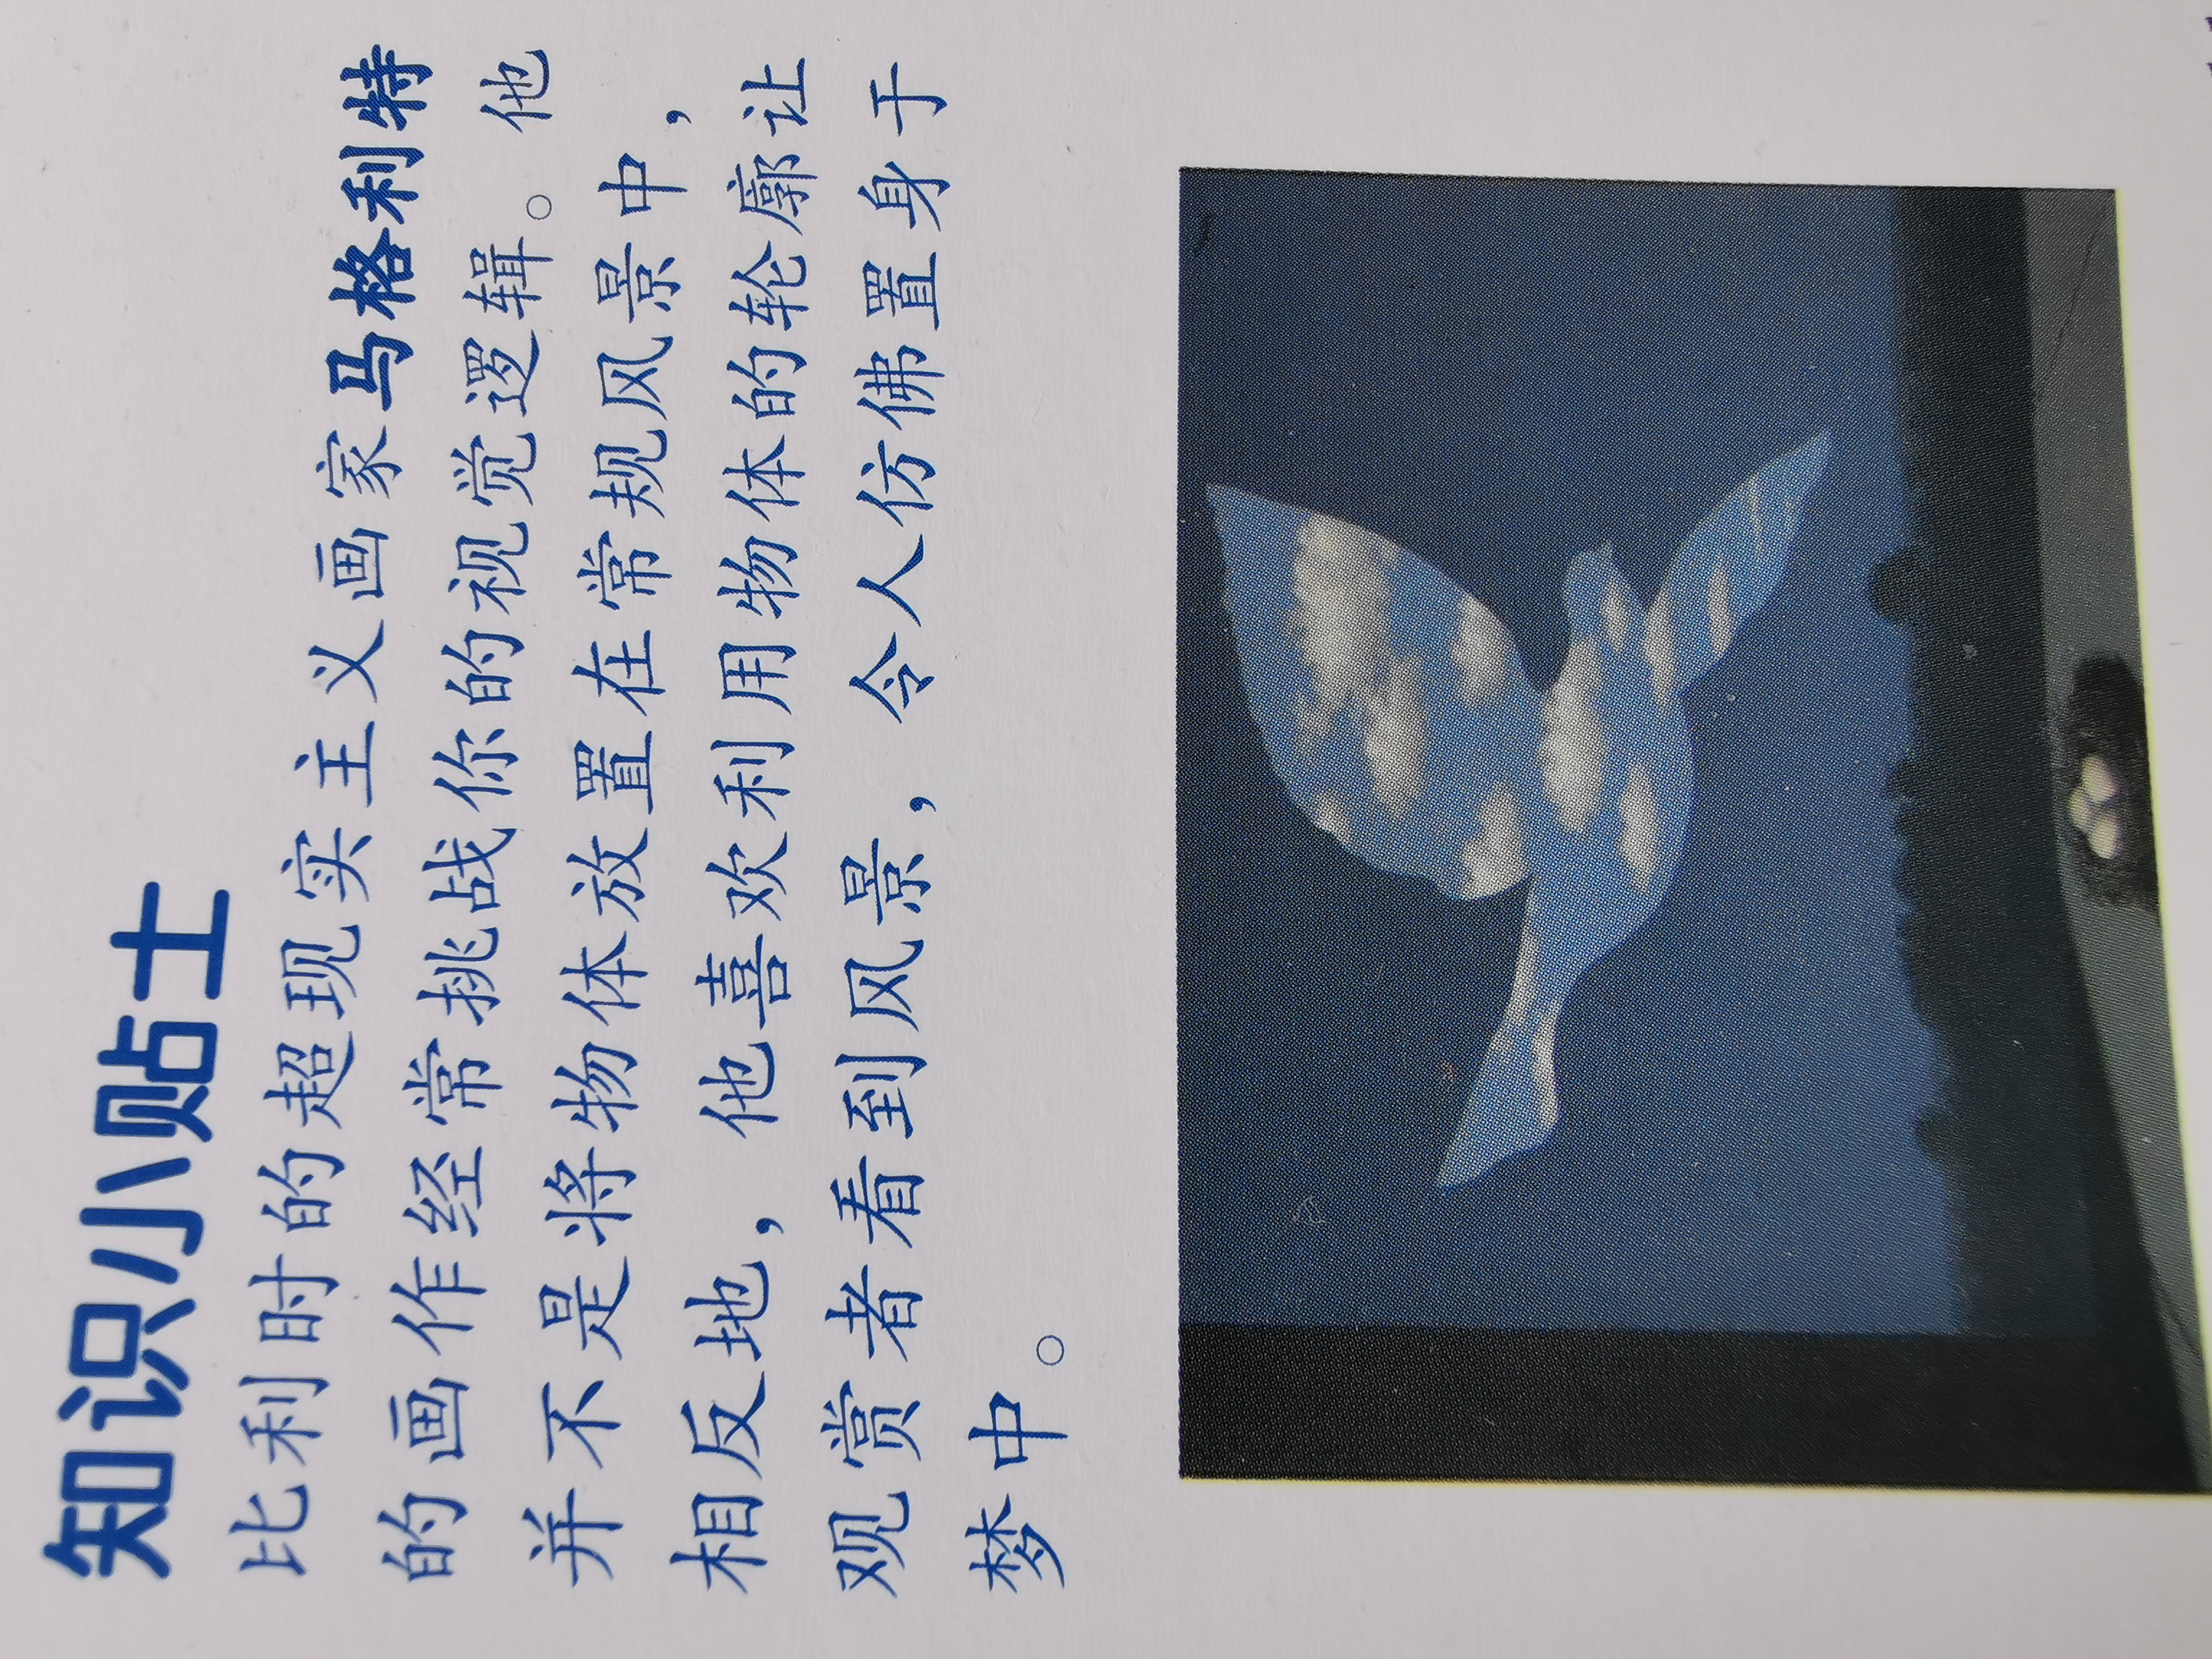 知识小贴士
比利时的超现实主义画家马格利特
的画作经常挑战你的视觉逻辑。他
并不是将物体放置在常规风景中，
相反地，他喜欢利用物体的轮廓让
观赏者看到风景，令人仿佛置身于
梦中。